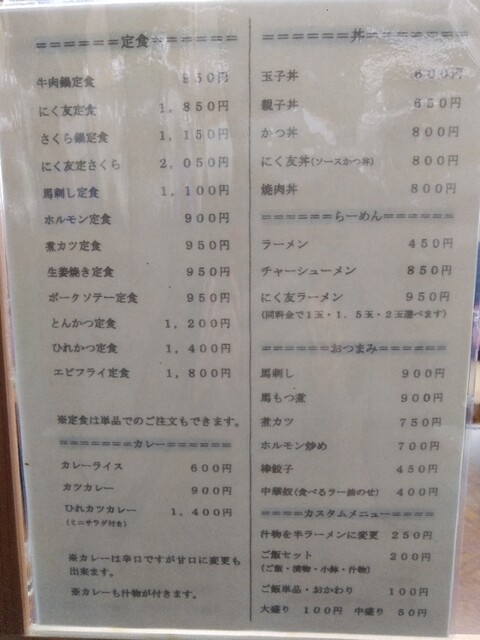 ======定食======
牛肉鍋定食 850円
にく友定食 1,850円
さくら鍋定食 1,150円
にく友定さくら 2,050円
馬刺し定食 1,100円
ホルモン定食 900円
煮カツ定食 950円
生姜焼き定食 950円
ポークソテー定食 950円
とんかつ定食 1,200円
ひれかつ定食 1,400円
エビフライ定食 1,800円
※定食は単品でのご注文もできます。
=======カレー======
カレーライス 600円
カツカレー 900円
ひれカツカレー 1,400円
(ミニサラダ付き)
※カレーは辛口ですが甘口に変更も
出来ます。
※カレーも汁物が付きます。
=======丼=======
玉子丼 600円
親子丼 650円
かつ丼 800円
にく友丼(ソースかつ丼) 800円
焼肉丼 800円
======らーめん======
ラーメン 450円
チャーシューメン 850円
にく友ラーメン 950円
(同料金で1玉・1.5玉・2玉選べます)
======おつまみ======
馬刺し 900円
馬もつ煮 900円
煮カツ 750円
ホルモン炒め 700円
棒餃子 450円
中華奴(食べるラー油のせ) 400円
====カスタムメニュー====
汁物を半ラーメンに変更 250円
ご飯セット 200円
(ご飯・漬物・小鉢・汁物)
ご飯単品・おかわり 100円
大盛り 100円 中盛り 50円